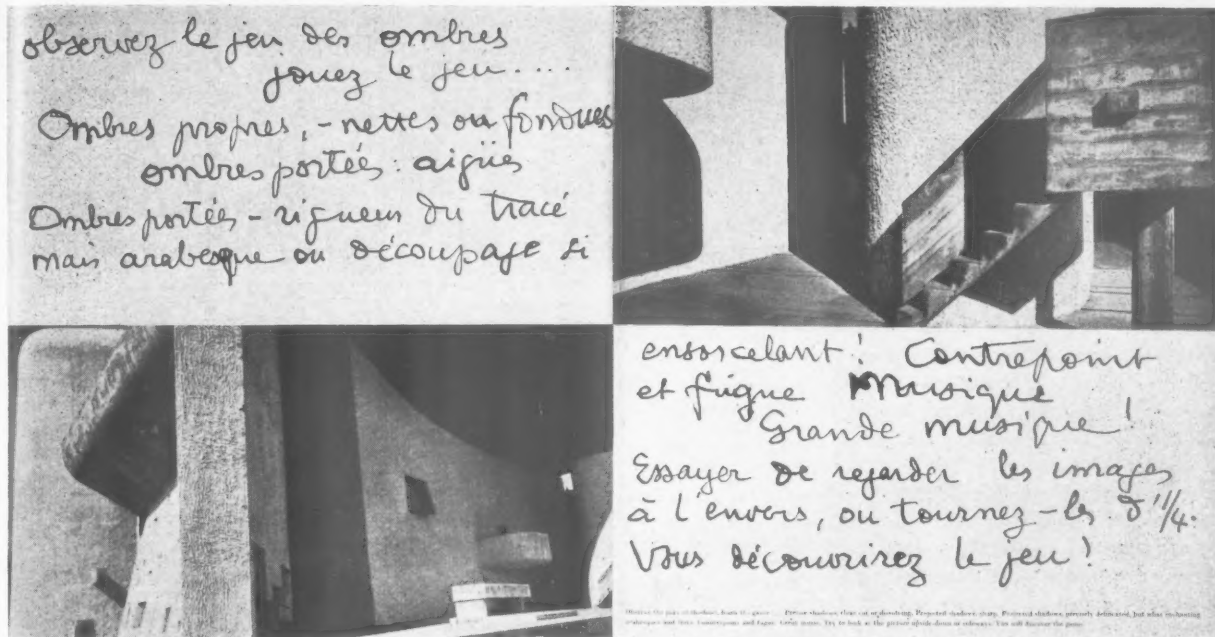 observez le jeu des ombres
jouez le jeu....
Ombres propres, - nettes ou fondues
ombres portées: aigües
Ombres portées - rigueur du tracé
mais arabesque ou découpage si
ensorcelant! Contrepoint
et fugue Musique
Grande musique!
Essayer de regarder les images
à l'envers, ou tournez-les d'1/4.
Vous découvrirez le jeu!
Observe the play of shadows, learn the game . . . Precise shadows, clear cut or dissolving. Projected shadows, sharp. Projected shadows, precisely delineated, but what enchanting
arabesques and frets. Counterpoint and fugue. Great music. Try to look at the picture upside-down or sideways. You will discover the game.